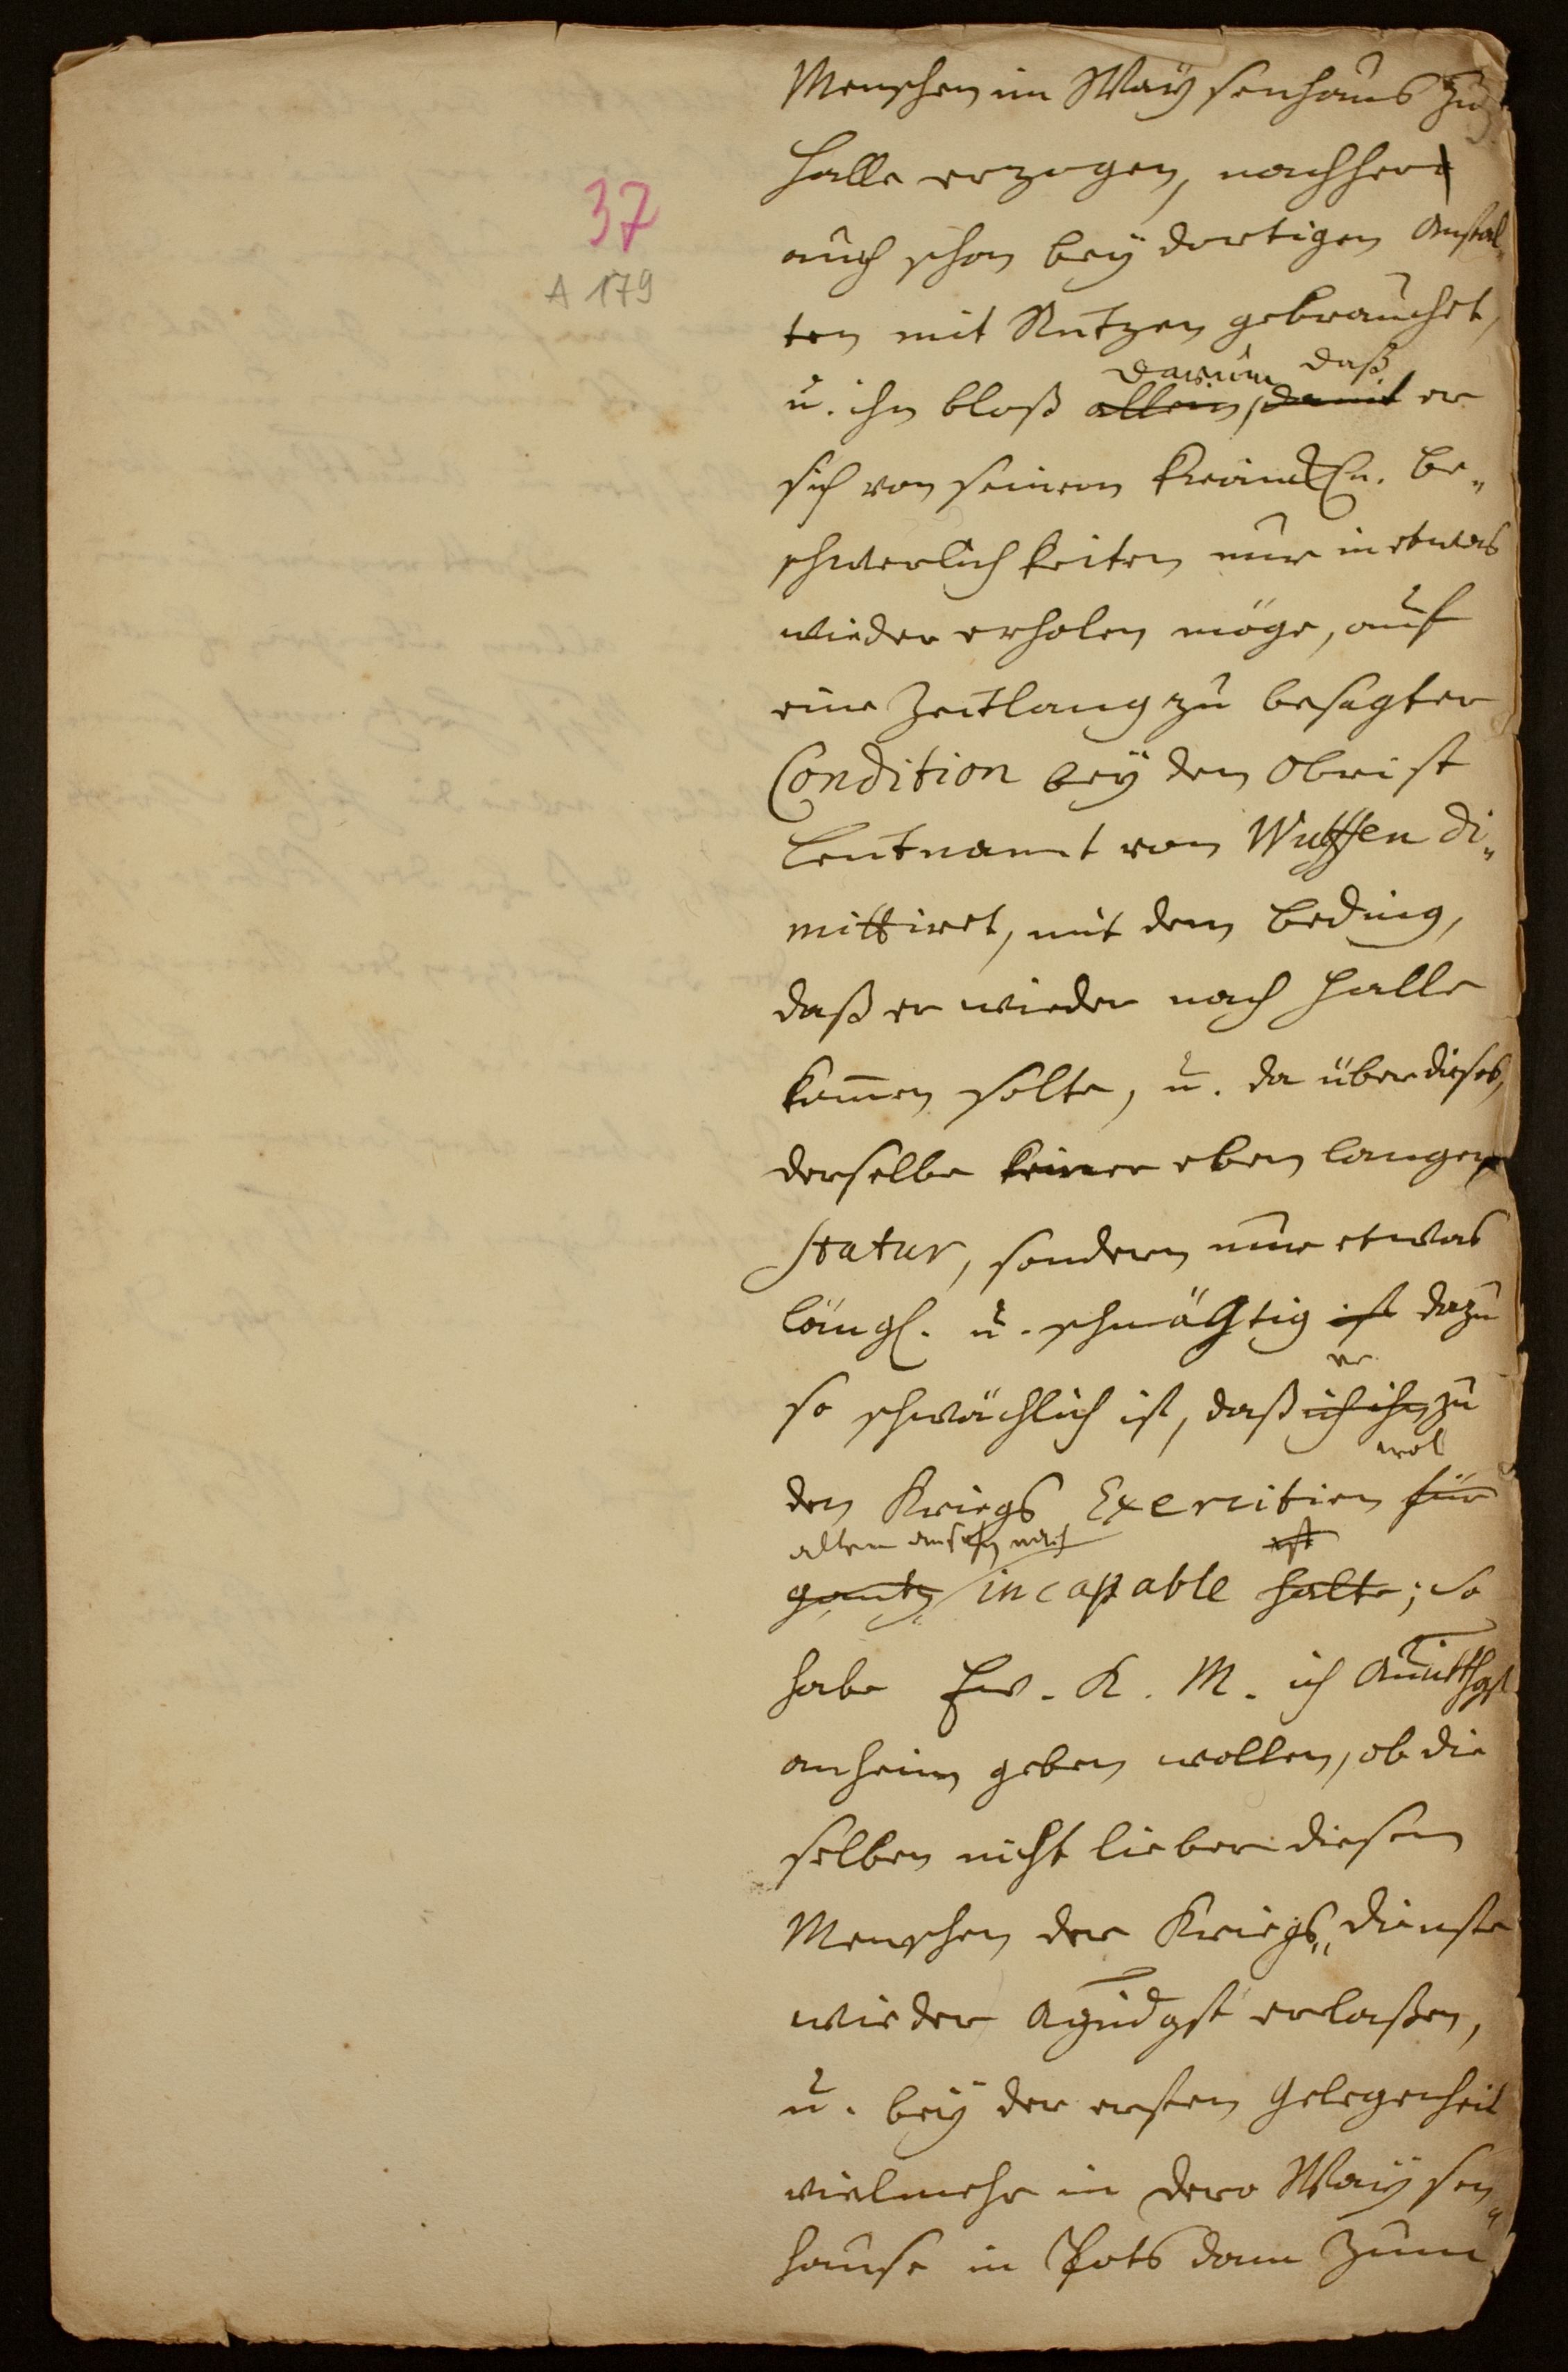 37
A 179
Menschen im Waÿsenhaus zu
Halle erzogen, nachher
auch schon beÿ dortigen Anstal„
ten mit Nutzen gebrauchet,
darum daß
u. ihn bloß allein, damit er
sich von seinen kränckln. be„
schwerlichkeiten nur in etwas
wieder erholen möge, auf
eine Zeitlang zu besagter
Condition beÿ den Obrist
Leutnannt von Wutffen di„
mittiret, mit dem Beding,
daß er wieder nach Halle
kom̄en solte, u. da über dieses,
derselbe keiner eben langen
Statur, sondern nur etwas
längl. u. schmächtig ist dazu
er
so schwächlich ist, daß ich ihn zu
wol
den Kriegs Exercitien für
allem ansehen nach ist
gantz incapable halte; So
habe Ew. K. M. ich
anheim geben wollen, ob die
selben nicht lieber diesen
Menschen der Kriegs„dienste
wieder agndgst erlaßen,
u. beÿ der ersten Gelegenheit
vielmehr in dero Waÿsen„
hause in Potsdam zum